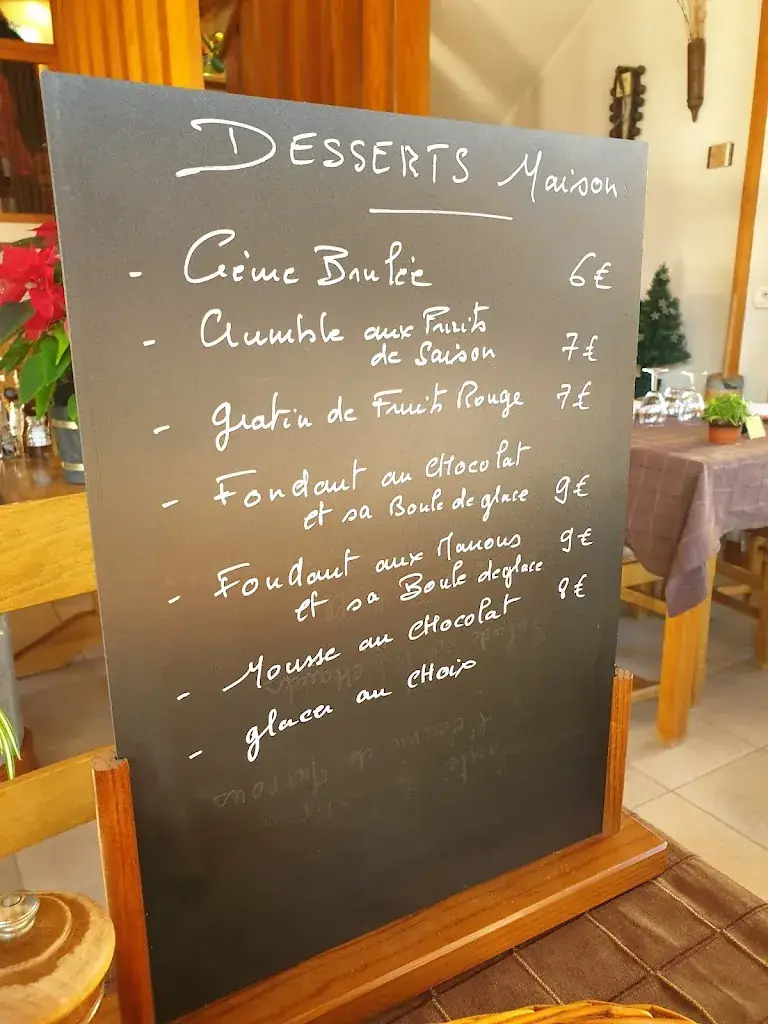 DESSERTS Maison
- Crème Brulée 6€
- Crumble aux Fruits
de Saison 7€
- gratin de Fruits Rouge 7€
- Fondant au CHocolat
et sa Boule de glace 9€
- Fondant aux Marrons 9€
et sa Boule de glace
- Mousse au CHocolat 8€
- glaces au cHoix